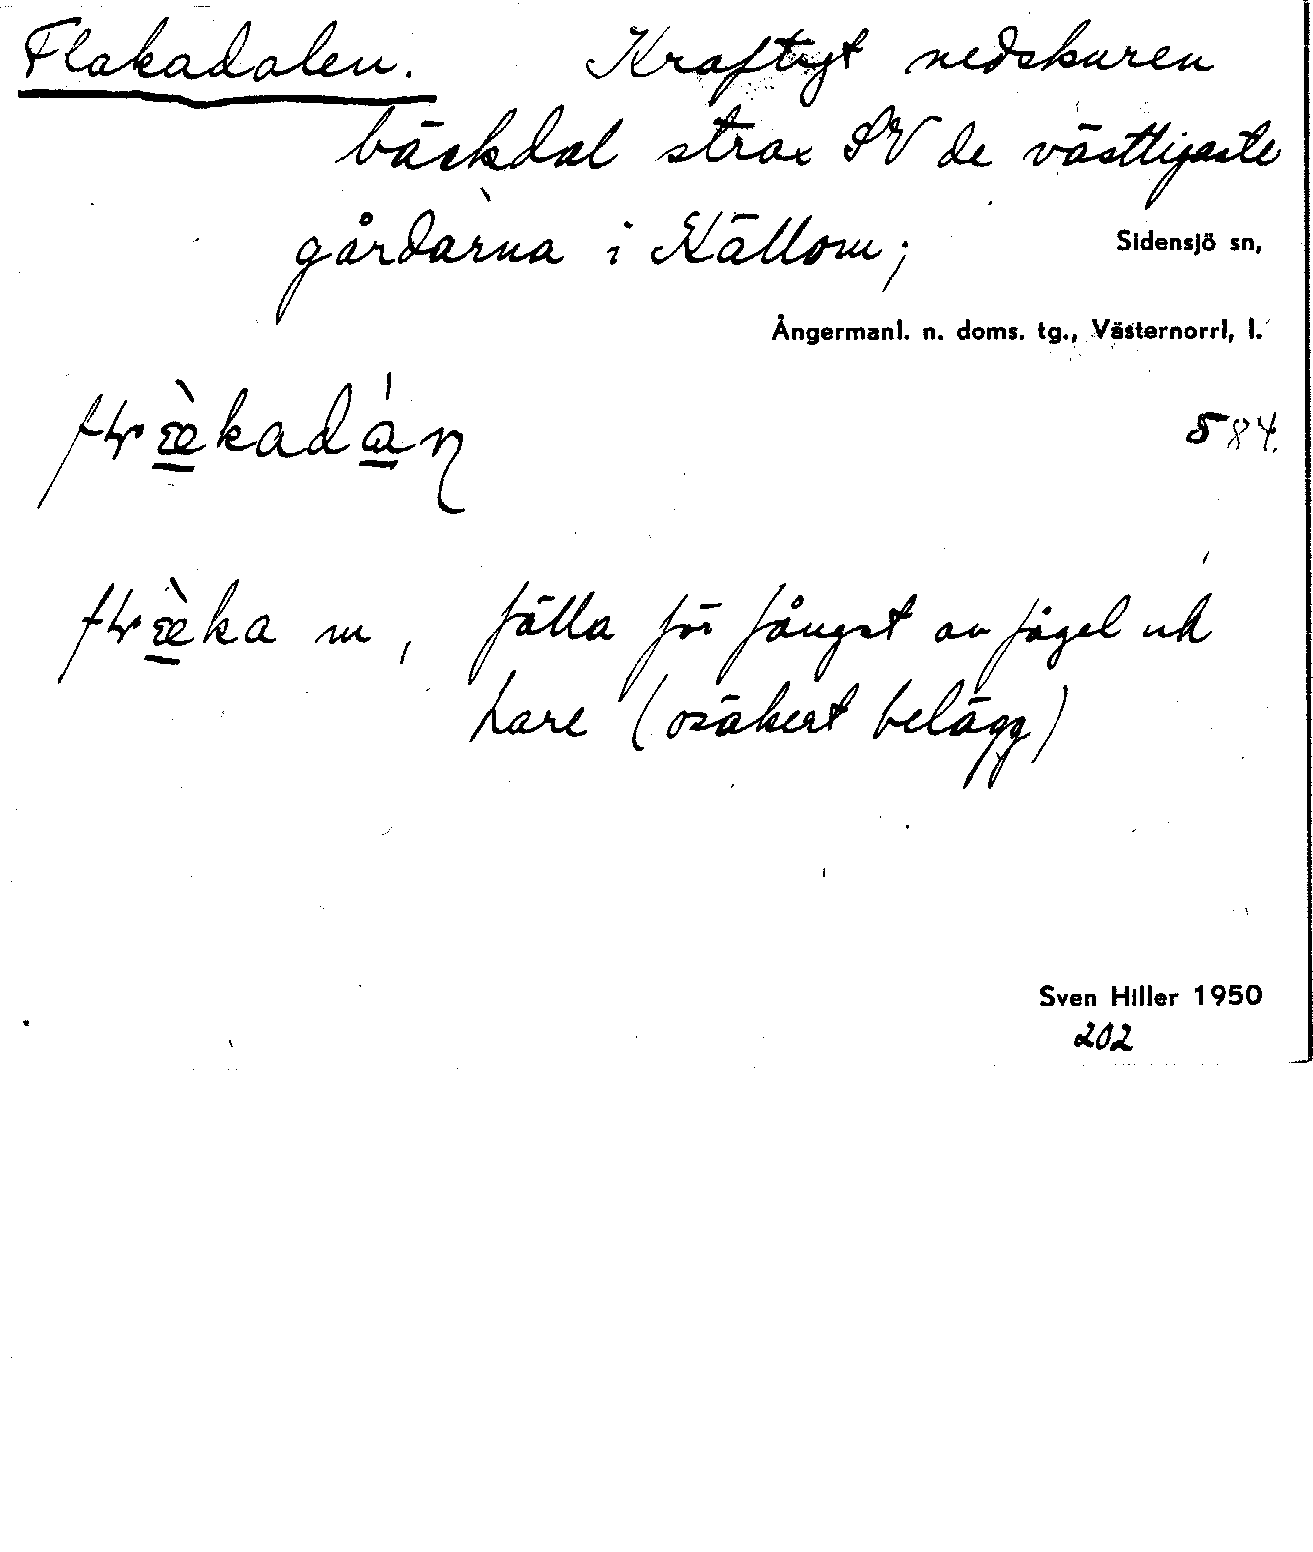 Flakadalen. Kraftigt nedskuren
bäckdal strax SV de västligaste
gårdarna i Källom;
Sidensjö sn,
Ångermanl. n. doms. tg., Västernorrl, l.
584.
m, fälla för fångst av fågel och
hare (osäkert belägg)
Sven Hiller 1950
202